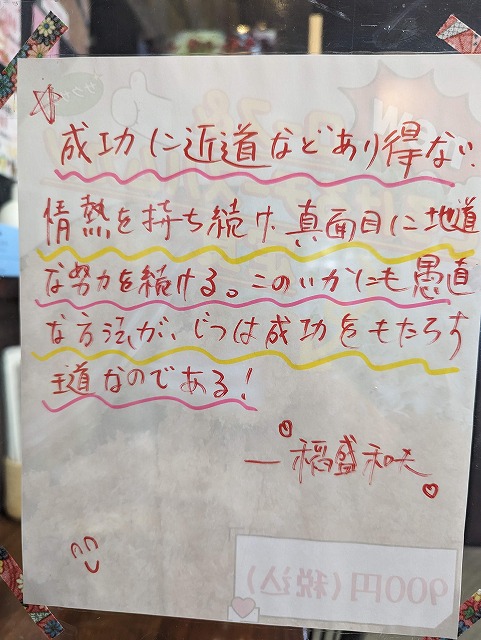 成功に近道などあり得ない。
情熱を持ち続け、真面目に地道
な努力を続ける。このいかにも愚直
な方法が、じつは成功をもたらす
王道なのである!
— 稲盛和夫
900円(税込)